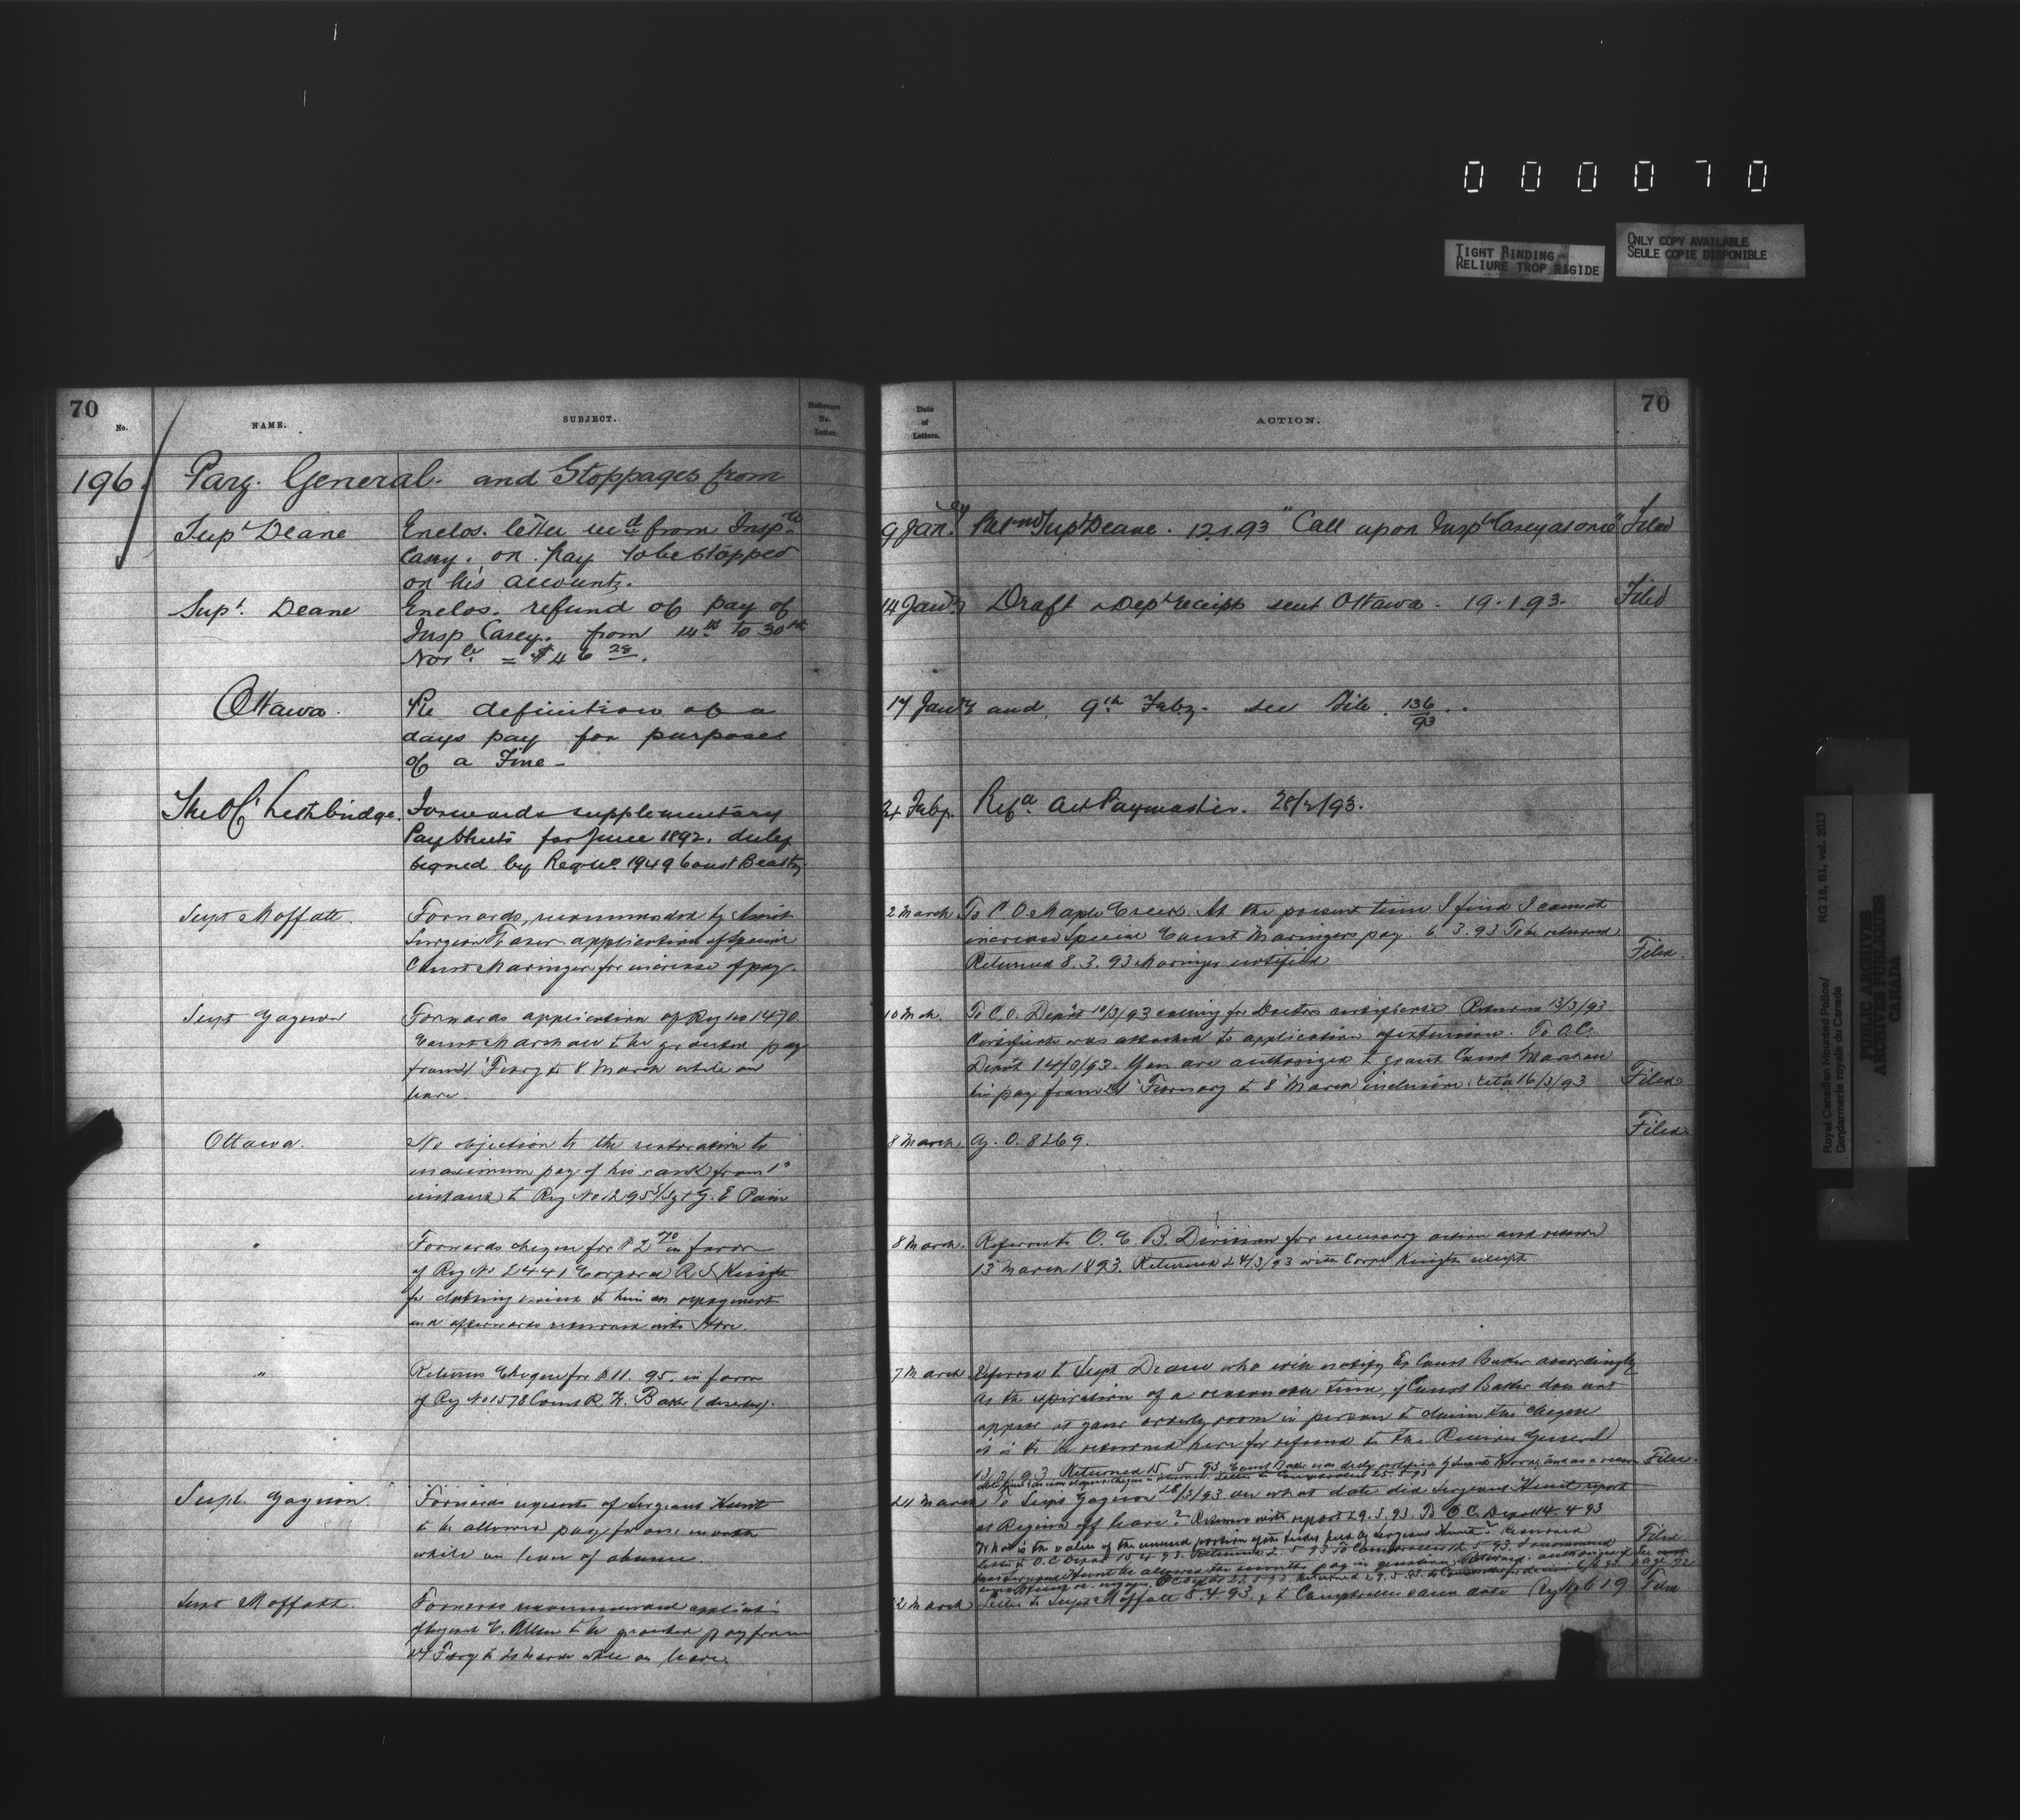 000070
TIGHT BINDING
RELIURE TROP RIGIDE
ONLY COPY AVAILABLE
SEULE COPIE DISPONIBLE
70
No.
NAME.
SUBJECT.
Reference No. Letter.
Date of Letters.
ACTION.
70
196. Pay. General. and Stoppages from
Supt Deane
Enclos. letter recd from Insptr
Casey. on pay to be stopped
on his account.
9 Jany
Retnd Supt Deane. 12.1.93 "Call upon Inspt Casey at once" Filed
Supt. Deane
Enclos. refund of pay of
Insp Casey. from 14th to 30th
Novbr. = $46 28.
14 Jany
Draft & Dept receipts sent Ottawa. 19.1.93. Filed
Ottawa.
Re definition of a
days pay for purposes
of a Fine -
17 Jany and 9th Feby. see File 136/93..
The OC Lethbridge.
Forwards supplementary
Pay Sheets for June 1892. duly
signed by Reg No. 1949 Const Beatty
24 Feby.
Refd. Act Paymaster. 28/2/93.
Supt Moffatt.
Forwards, recommended by Assist
Surgeon Fraser application of Special
Const Maringer for increase of pay.
2 March.
To C.O. Maple Creek. At the present time I find I cannot
increase Special Const Maringers pay. 6.3.93 To be returned
Returned 8.3.93 Maringer notified
Filed.
Supt Gagnon
Forwards application of Reg No 1470
Const Marshall to be granted pay
from 1 Febry to 8 March while on
leave.
10 Mch.
To C.O. Depot 10/3/93 calling for Doctors certificate Returned 13/3/93
Certificate was attached to application of extension. To O.C.
Depot 14/3/93. You are authorized to grant Const Marshall
his pay from 1 February to 8 March inclusive. 16/3/93
Filed
Ottawa.
No objection to the restoration to
maximum pay of his rank from 1st
instant to Reg No 1295 S/Sgt G. E Pain
8 March.
G. O. 8269.
Filed.
"
Forwards cheque for $2 70 in favor
of Reg No 2441 Corporal R S Knight
for clothing issued to him on repayment
and afterwards returned into Store.
8 March.
Referred to O.C. B. Division for necessary action and return
13 March 1893. Returned 24/3/93 with Corpl Knights receipt
"
Returns Cheque for $11.95. in favor
of Reg No 1578 Const R. W. Baker (deserter).
7 March
Referred to Supt Deane who will notify Ex Const Baker accordingly
At the expiration of a reasonable time, if Const Baker does not
appear at your orderly room in person to claim the cheque
it is to be returned here for refund to the Receiver General
13/3/93. Returned 15.5.93 Const Baker was duly notified
Filed.
Supt. Gagnon.
Forwards request of Sergeant Hunt
to be allowed pay for one month
while on leave of absence.
24 March
To Supt Gagnon 28/3/93 on what date did Sergeant Hunt report
at Regina off leave? Returned with report 29.3.93. To O.C. Depot 4.4.93
What is the value of the unused portion of the ticket held by Sergeant Hunt? Returned
Filed
See page 72
Supt Moffatt.
Forwards recommended application
of Sergeant C. Allen to be granted pay from
Febry to March while on leave.
22 March
Letter to Supt Moffatt 5.4.93. & to Comptroller same date Reg No 619 Filed
Royal Canadian Mounted Police/ RG 18, B1, vol. 2013
Gendarmerie royale du Canada
PUBLIC ARCHIVES
ARCHIVES PUBLIQUES
CANADA